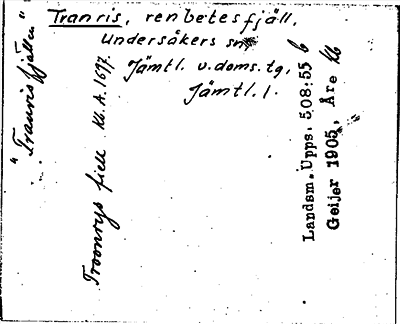 Tranris, renbetesfjäll.
Undersåkers sn,
Jämtl. v. doms. tg,
Jämtl. l.
"Tranrisfjällen"
Troonrys fiell Kk. A. 1697.
Landsm. Upps. 508:55 b
Geijer 1905, Åre kb